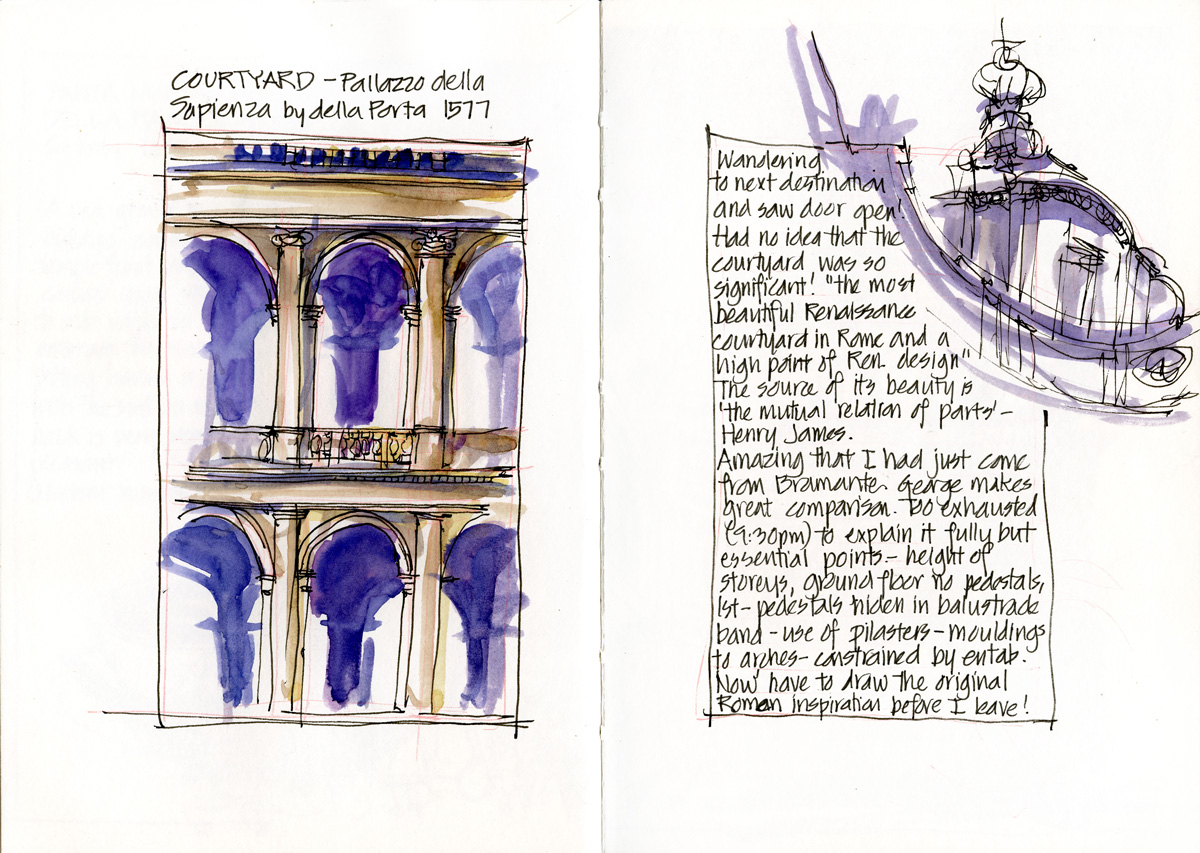 COURTYARD - Pallazzo della
Sapienza by della Porta 1577
Wandering
to next destination
and saw door open!
Had no idea that the
courtyard was so
significant! "the most
beautiful Renaissance
courtyard in Rome and a
high point of Ren. design"
The source of its beauty is
'the mutual relation of parts' -
Henry James.
Amazing that I had just come
from Bramante. George makes
great comparison. Too exhausted
(9:30pm) to explain it fully but
essential points - height of
storeys, ground floor no pedestals,
1st - pedestals hiden in balustrade
band - use of pilasters - mouldings
to arches - constrained by entab.
Now have to draw the original
Roman inspiration before I leave!